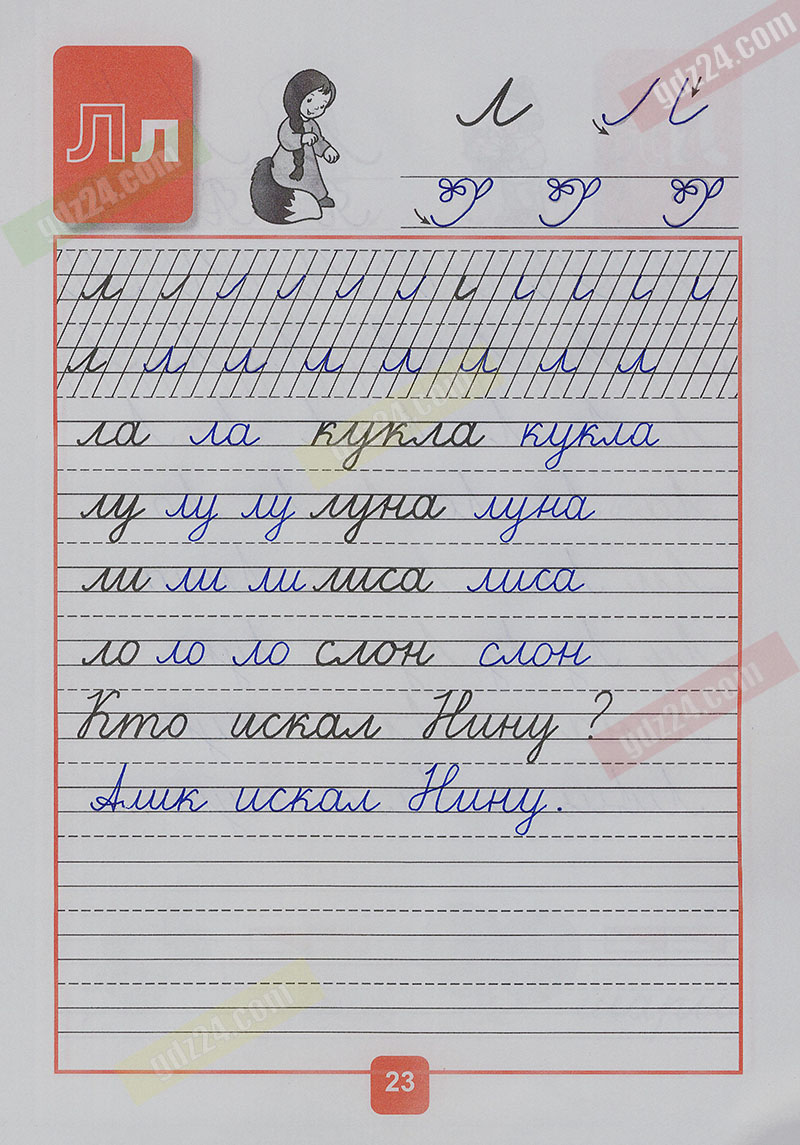 gdz24.com
Лл
л л
gdz24.com
л
л л л л л л л л
gdz24.com
ла ла кукла кукла
лу лу лу луна луна
ли ли ли лиса лиса
ло ло ло слон слон
gdz24.com
Кто искал Нину ?
Алик искал Нину.
gdz24.com
23